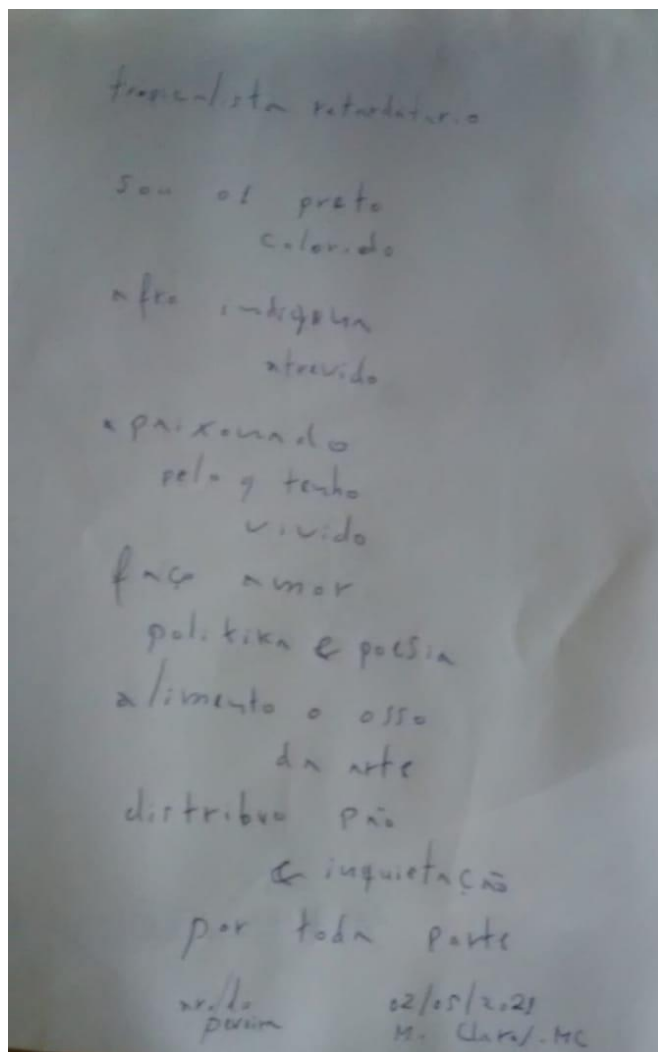 tropicalista retardatario
sou
preto
colorido
afro indigena
atrevido
apaixonado
pelo q tenho
vivido
faço amor
politika e poesia
alimento o osso
da arte
distribuo pão
e inquietação
por toda parte
02/05/2021
M. Claros-MG